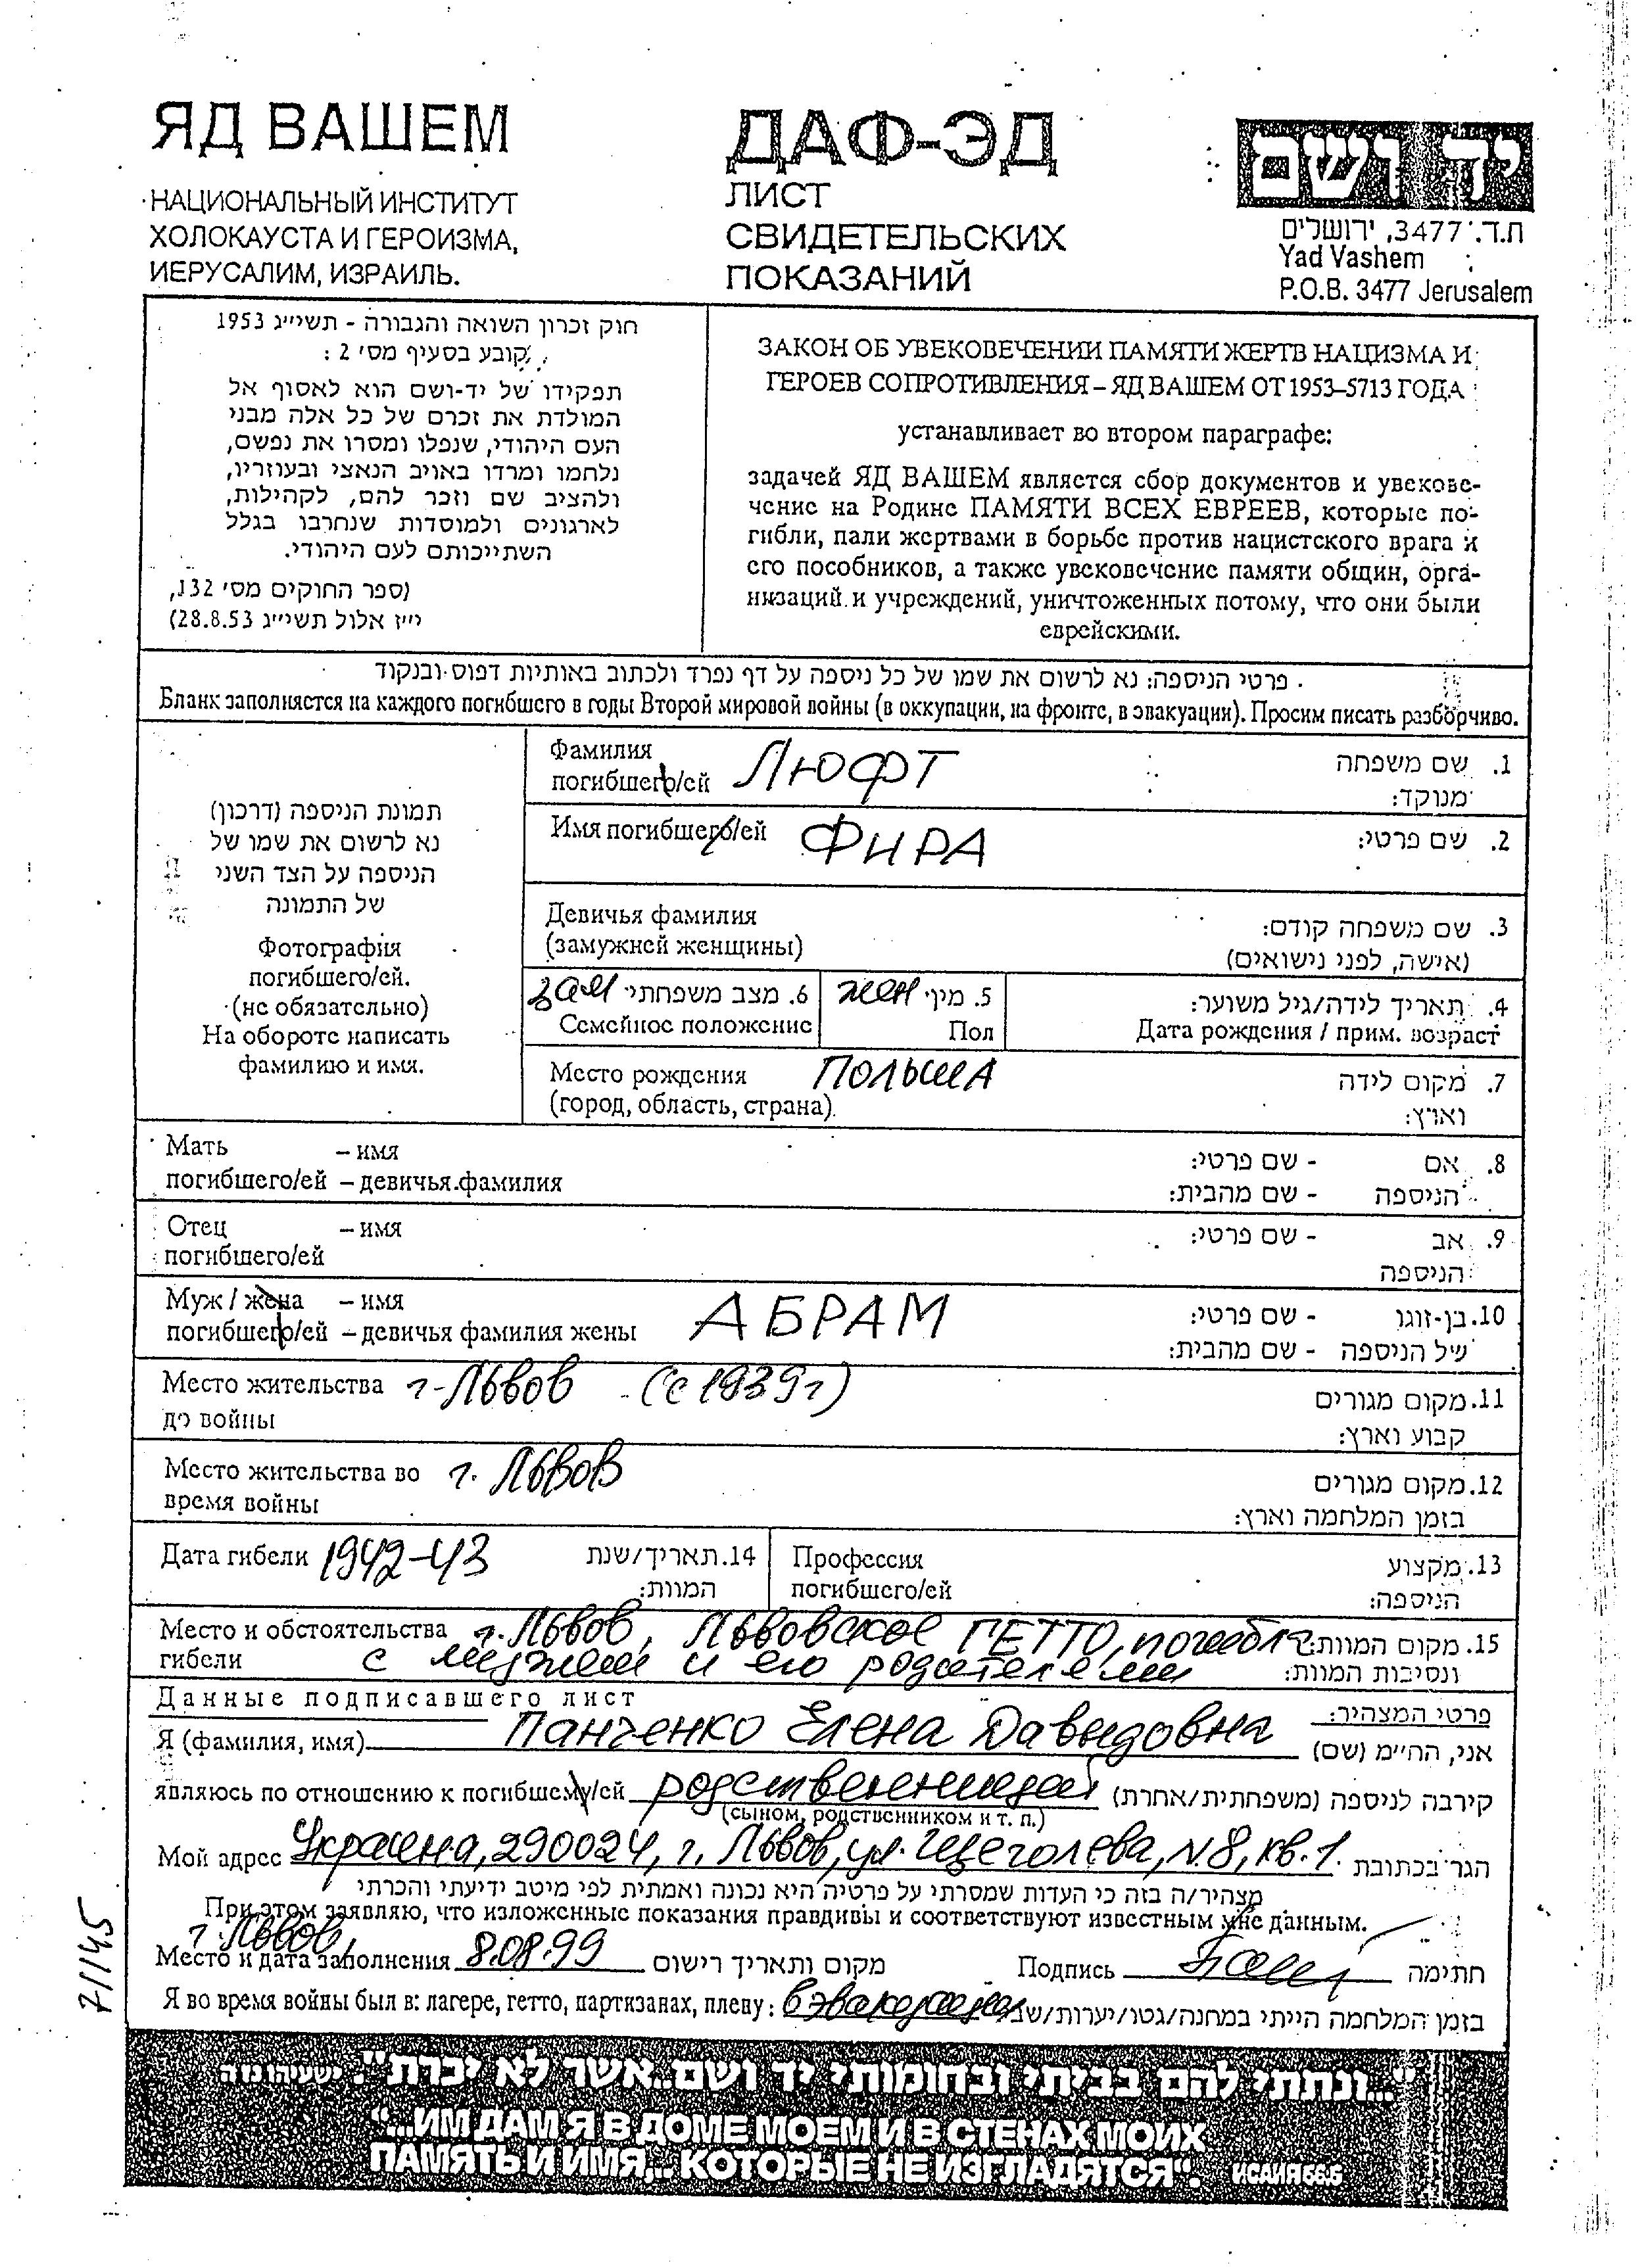 ЯД ВАШЕМ
НАЦИОНАЛЬНЫЙ ИНСТИТУТ
ХОЛОКАУСТА И ГЕРОИЗМА,
ИЕРУСАЛИМ, ИЗРАИЛЬ.
ДАФ-ЭД
ЛИСТ
СВИДЕТЕЛЬСКИХ
ПОКАЗАНИЙ
יד ושם
ת.ד. 3477, ירושלים
Yad Vashem
P.O.B. 3477 Jerusalem
חוק זכרון השואה והגבורה - תשי״ג 1953
קובע בסעיף מס׳ 2 :
תפקידו של יד-ושם הוא לאסוף אל
המולדת את זכרם של כל אלה מבני
העם היהודי, שנפלו ומסרו את נפשם,
נלחמו ומרדו באויב הנאצי ובעוזריו,
ולהציב שם וזכר להם, לקהילות,
לארגונים ולמוסדות שנחרבו בגלל
השתייכותם לעם היהודי.
(ספר החוקים מס׳ 132,
י״ז אלול תשי״ג 28.8.53)
ЗАКОН ОБ УВЕКОВЕЧЕНИИ ПАМЯТИ ЖЕРТВ НАЦИЗМА И
ГЕРОЕВ СОПРОТИВЛЕНИЯ – ЯД ВАШЕМ ОТ 1953–5713 ГОДА
устанавливает во втором параграфе:
задачей ЯД ВАШЕМ является сбор документов и увекове-
чение на Родине ПАМЯТИ ВСЕХ ЕВРЕЕВ, которые по-
гибли, пали жертвами в борьбе против нацистского врага и
его пособников, а также увековечение памяти общин, орга-
низаций и учреждений, уничтоженных потому, что они были
еврейскими.
פרטי הניספה: נא לרשום את שמו של כל ניספה על דף נפרד ולכתוב באותיות דפוס ובנקוד
Бланк заполняется на каждого погибшего в годы Второй мировой войны (в оккупации, на фронте, в эвакуации). Просим писать разборчиво.
תמונת הניספה (דרכון)
נא לרשום את שמו של
הניספה על הצד השני
של התמונה
Фотография
погибшего/ей.
(не обязательно)
На обороте написать
фамилию и имя.
Фамилия
погибшего/ей ЛЮФТ
1. שם משפחה
מנוקד:
Имя погибшего/ей ФИРА
2. שם פרטי:
Девичья фамилия
(замужней женщины)
3. שם משפחה קודם:
(אישה, לפני נישואים)
зам 6. מצב משפחתי
Семейное положение
жен 5. מין
Пол
4. תאריך לידה/גיל משוער:
Дата рождения / прим. возраст
Место рождения ПОЛЬША
(город, область, страна)
7. מקום לידה
וארץ:
Мать – имя
погибшего/ей – девичья фамилия
8. אם - שם פרטי:
הניספה - שם מהבית:
Отец – имя
погибшего/ей
9. אב - שם פרטי:
הניספה
Муж / жена – имя
погибшего/ей – девичья фамилия жены АБРАМ
10. בן-זוגו - שם פרטי:
של הניספה - שם מהבית:
Место жительства г. Львов (с 1939г)
до войны
11. מקום מגורים
קבוע וארץ:
Место жительства во г. Львов
время войны
12. מקום מגורים
בזמן המלחמה וארץ:
Дата гибели 1942-43
14. תאריך/שנת
המוות:
Профессия
погибшего/ей
13. מקצוע
הניספה:
Место и обстоятельства г. Львов, Львовское ГЕТТО, погибла
гибели с мужем и его родителями
15. מקום המוות:
ונסיבות המוות:
Данные подписавшего лист
פרטי המצהיר:
Я (фамилия, имя) Панченко Елена Давыдовна אני, החי״מ (שם)
являюсь по отношению к погибшему/ей родственницей קירבה לניספה (משפחתית/אחרת)
(сыном, родственником и т. п.)
Мой адрес Украина, 290024, г. Львов, ул. Щеголева, N.8, кв.1. הגר בכתובת
מצהיר/ה בזה כי העדות שמסרתי על פרטיה היא נכונה ואמתית לפי מיטב ידיעתי והכרתי
При этом заявляю, что изложенные показания правдивы и соответствуют известным мне данным.
г. Львов,
Место и дата заполнения 8.08.99 מקום ותאריך רישום Подпись חתימה
Я во время войны был в: лагере, гетто, партизанах, плену: в эвакуации בזמן המלחמה הייתי במחנה/גטו/יערות/שבי
71145
"...ונתתי להם בביתי ובחומותי יד ושם..אשר לא יכרת". ישעיהו נו ה
“...ИМ ДАМ Я В ДОМЕ МОЕМ И В СТЕНАХ МОИХ
ПАМЯТЬ И ИМЯ... КОТОРЫЕ НЕ ИЗГЛАДЯТСЯ“. ИСАИЯ 56.6